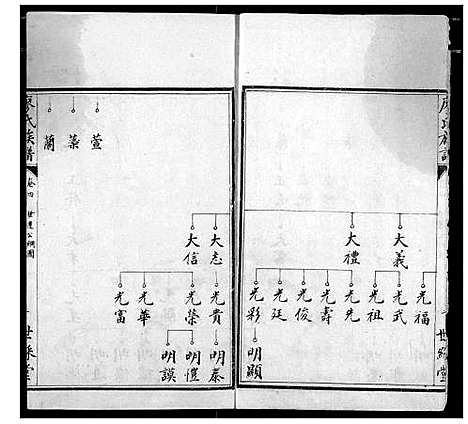 廖氏族譜
大義
大禮
光福
光武
光祖
光先
光壽
光俊
光廷
光彩
明顯
世綵堂
大志
大信
光貴
光榮
光華
光富
明泰
明愷
明謨
萱
藻
蘭
廖氏族譜
卷四
世綵堂